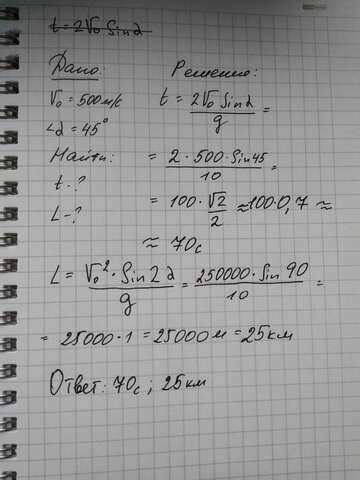 t = 2V₀ Sinα
Дано:
V₀ = 500 м/с
∠α = 45°
Найти:
t - ?
L - ?
Решение:
t = 2V₀ Sinα / g =
= 2 · 500 · Sin45 / 10 =
= 100 · √2 / 2 ≈ 100 · 0,7 ≈
≈ 70с
L = V₀² · Sin2α / g = 250000 · Sin 90 / 10 =
= 25000 · 1 = 25000 м = 25 км
Ответ: 70с ; 25 км